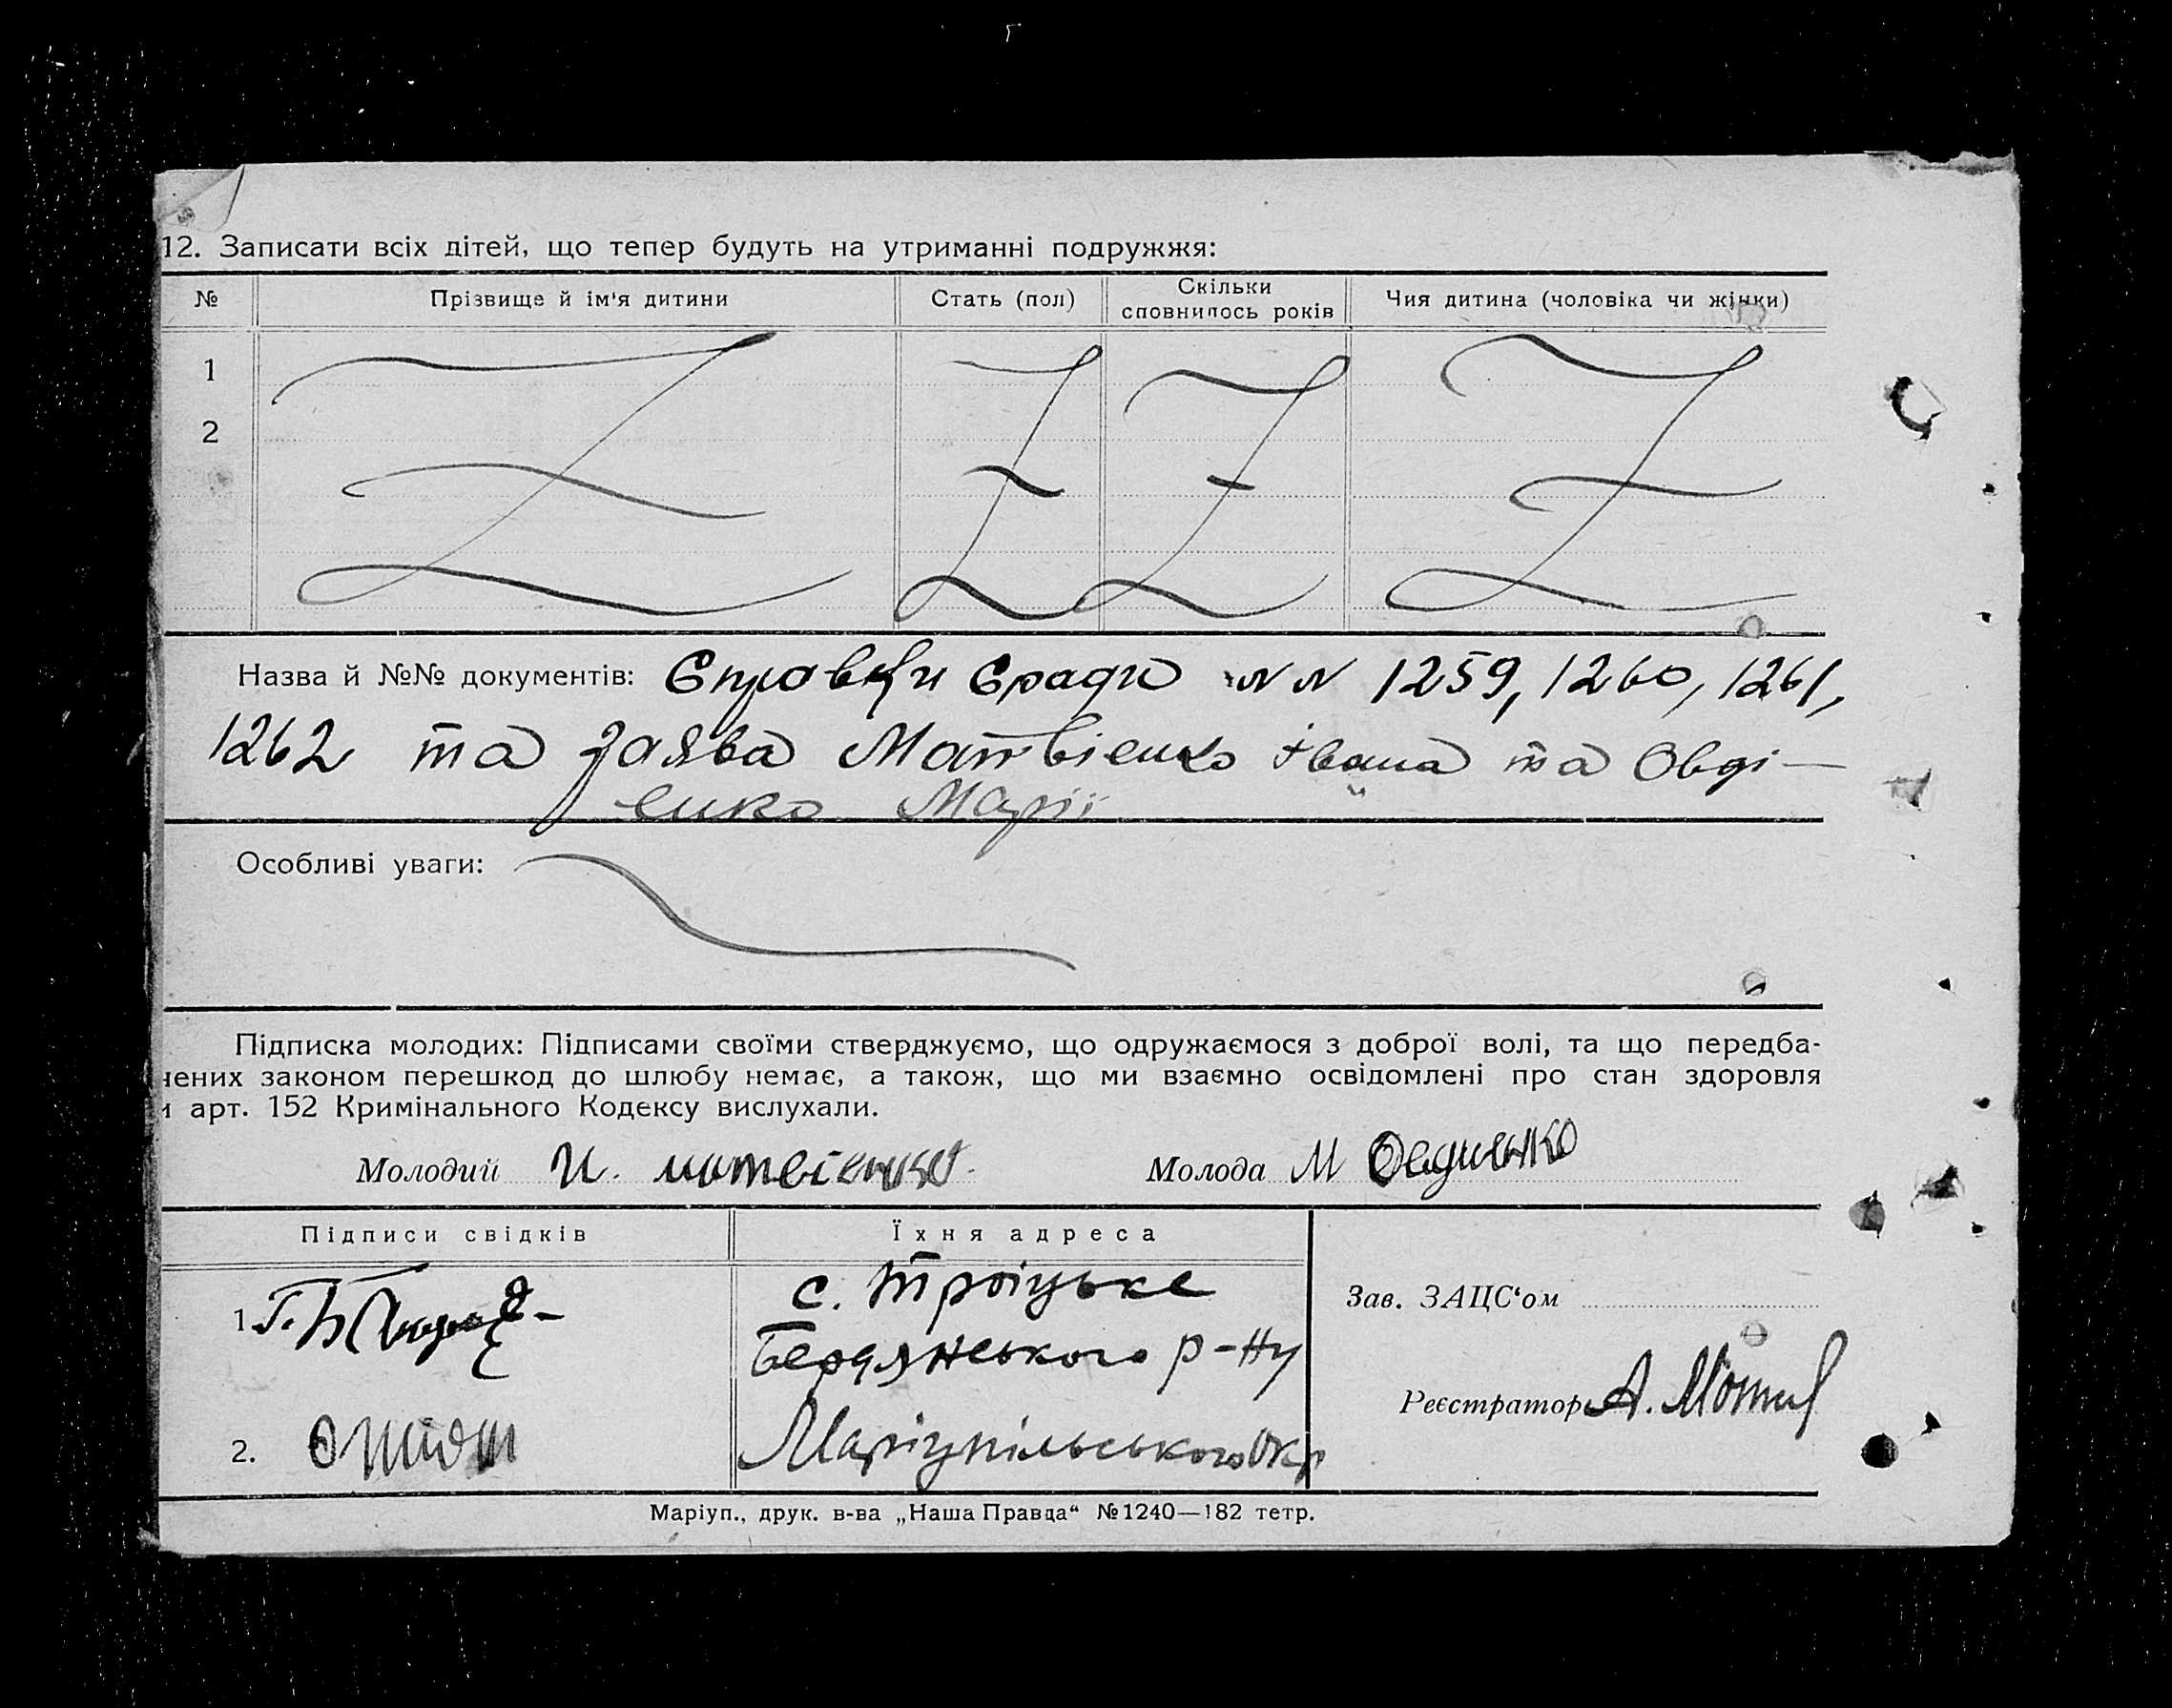 12. Записати всіх дітей, що тепер будуть на утриманні подружжя:
№ Прізвище й ім'я дитини Стать (пол) Скільки сповнилось років Чия дитина (чоловіка чи жінки)
1
2
Назва й №№ документів: Справки Сради NN 1259, 1260, 1261,
1262 та заява Матвієнко Івана та Овді-
єнко Марії
Особливі уваги:
Підписка молодих: Підписами своїми стверджуємо, що одружаємося з доброї волі, та що передба-
чених законом перешкод до шлюбу немає, а також, що ми взаємно освідомлені про стан здоровля
и арт. 152 Кримінального Кодексу вислухали.
Молодий И. матвіенко Молода М Овдиенко
Підписи свідків Їхня адреса
1. с. Троіцьке
Бердянського р-ну
Зав. ЗАЦС'ом
2. Маріупільського Окр
Реєстратор А.
Маріуп., друк. в-ва „Наша Правда“ №1240—182 тетр.